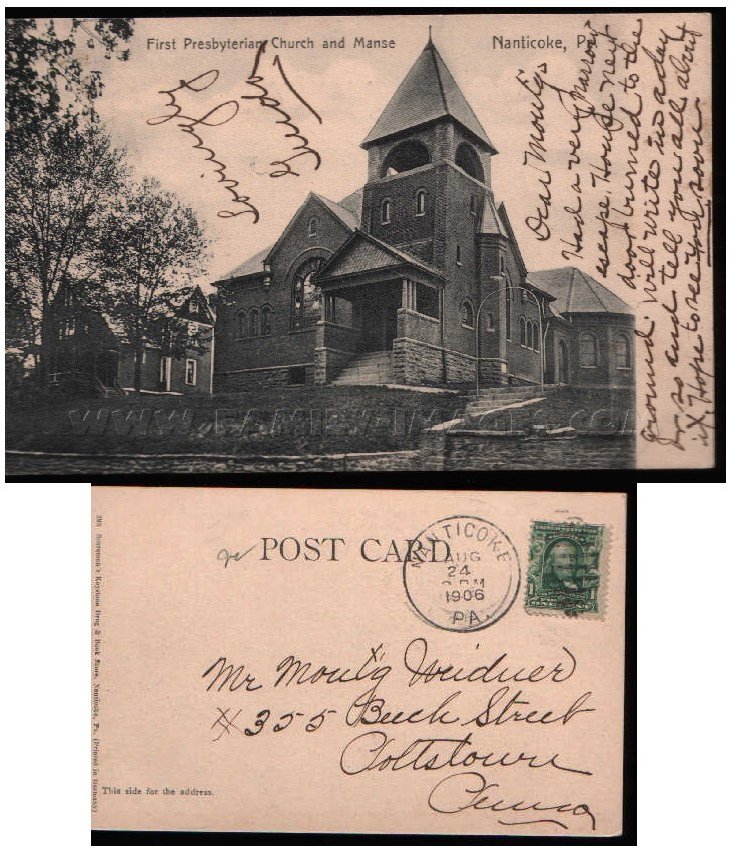 First Presbyterian Church and Manse
Nanticoke, Pa
Dear Mont'g
Had a very narrow
escape. House next
door burned to the
ground. Will write in a day
or so and tell you all about
it. Hope to see you soon
Lovingly
WWW.FAMILY-IMAGES
POST CARD
NANTICOKE
AUG
24
PM
1906
PA.
Mr Mont'g Weidner
# 355 Beech Street
Pottstown
Penna
This side for the address.
Keystone Drug & Book Store, Nanticoke, Pa. (Printed in Germany)